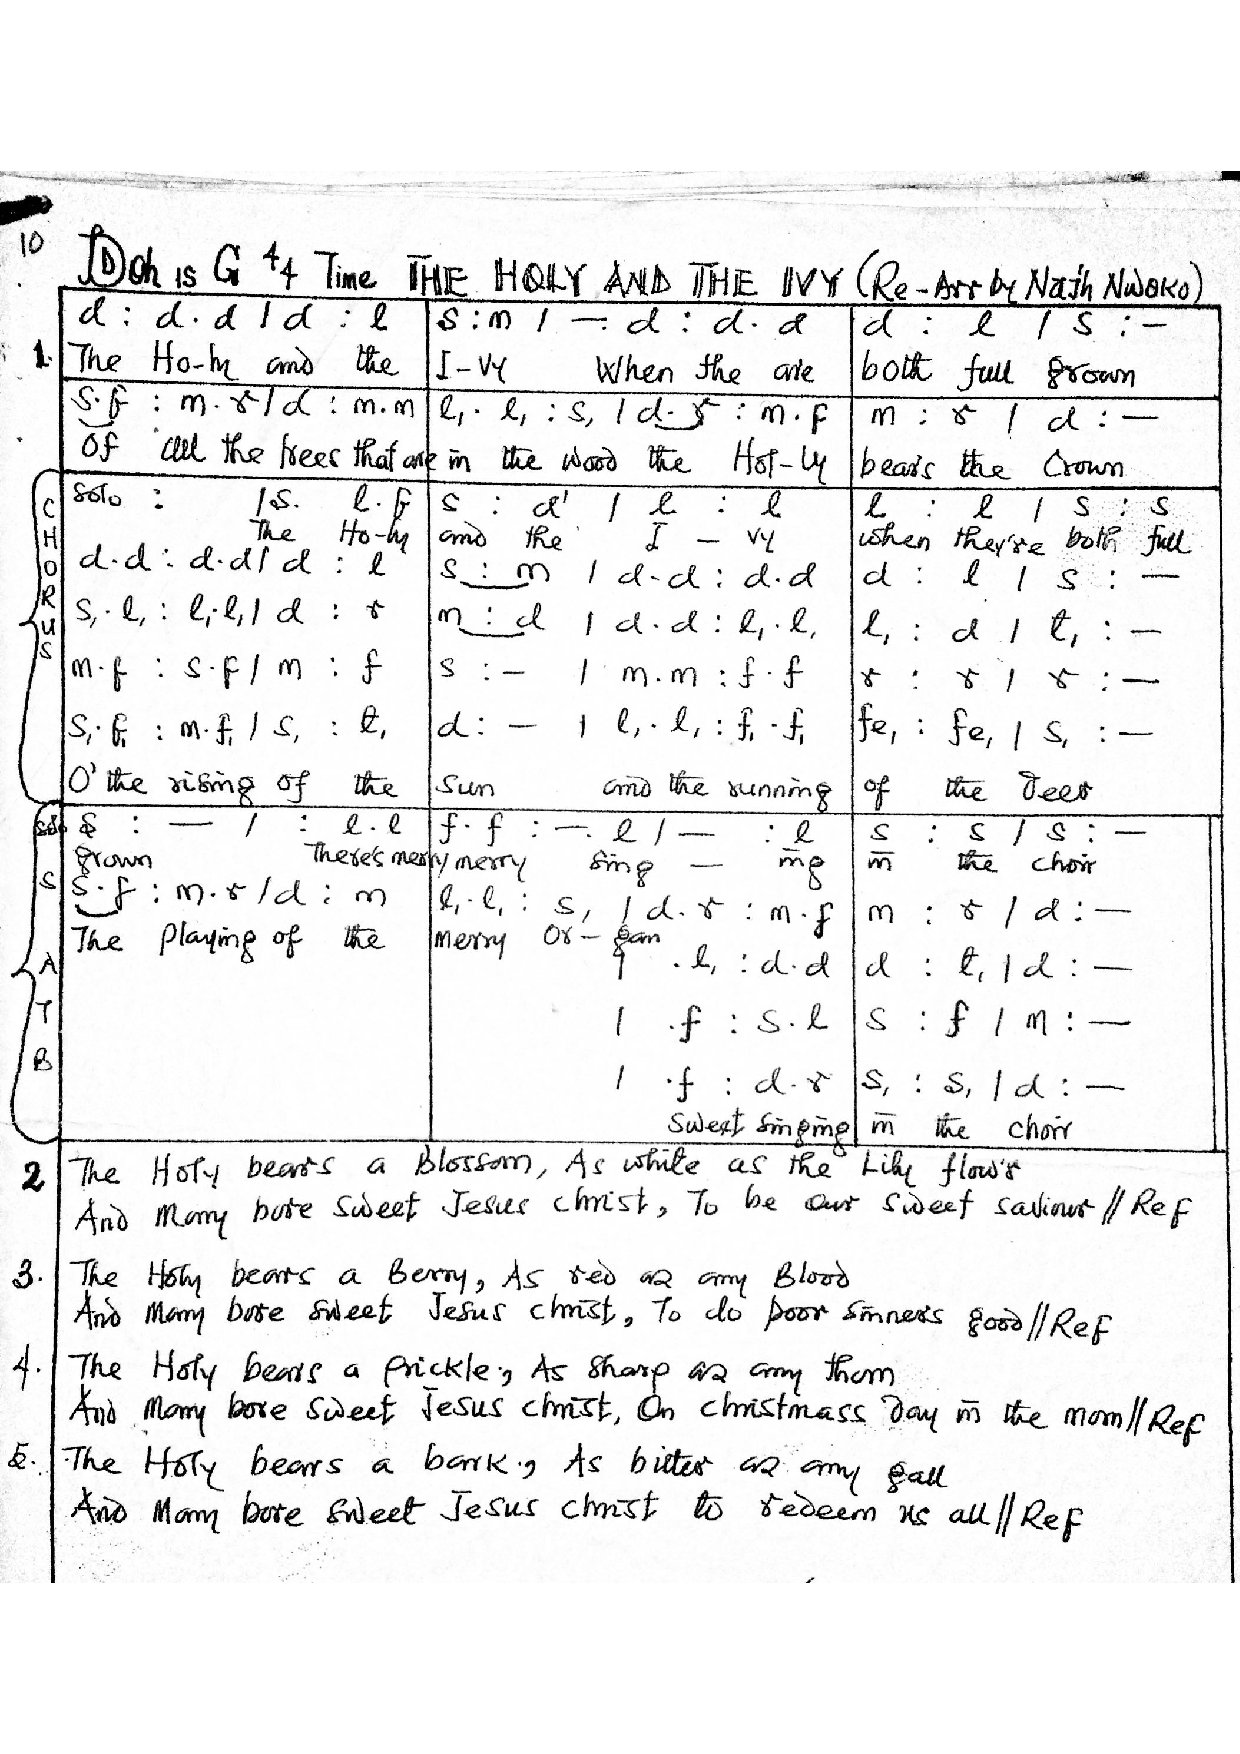 10
Doh is G 4/4 Time THE HOLY AND THE IVY (Re-Arr by Najh Nwoko)
d : d.d / d : l | s : m / — . d : d.d | d : l / s : —
1. The Ho-ly and the | I-vy When the are | both full grown
s.f : m.r / d : m.m | l₁.l₁ : s₁ / d.r : m.f | m : r / d : —
Of all the trees that are in the wood the Hol-ly | bears the Crown
CHORUS
Solo : / s. l.f | s : d' / l : l | l : l / s : s
The Ho-ly | and the I - vy | when they're both full
d.d : d.d / d : l | s : m / d.d : d.d | d : l / s : —
s₁.l₁ : l₁.l₁ / d : r | m : d / d.d : l₁.l₁ | l₁ : d / t₁ : —
m.f : s.f / m : f | s : — / m.m : f.f | r : r / r : —
s₁.f₁ : m.f₁ / s₁ : t₁ | d : — / l₁.l₁ : f₁.f₁ | fe₁ : fe₁ / s₁ : —
O' the rising of the | Sun and the running | of the Deer
Solo s : — / : l.l | f.f : — . l / — : l | s : s / s : —
grown There's merry merry Sing — ing | in the choir
S s.f : m.r / d : m | l₁.l₁ : s₁ / d.r : m.f | m : r / d : —
The playing of the | merry Or - gan
A / .l₁ : d.d | d : t₁ / d : —
T / .f : s.l | s : f / m : —
B / .f : d.r | s₁ : s₁ / d : —
Sweet Singing | in the choir
2 The Holy bears a Blossom, As white as the Lily flow'r
And Mary bore sweet Jesus christ, To be our sweet saviour // Ref
3. The Holy bears a Berry, As red as any Blood
And Mary bore sweet Jesus christ, To do poor sinners good // Ref
4. The Holy bears a prickle, As sharp as any thorn
And Mary bore sweet Jesus christ, On christmass Day in the morn // Ref
5. The Holy bears a bark, As bitter as any gall
And Mary bore sweet Jesus christ to redeem us all // Ref